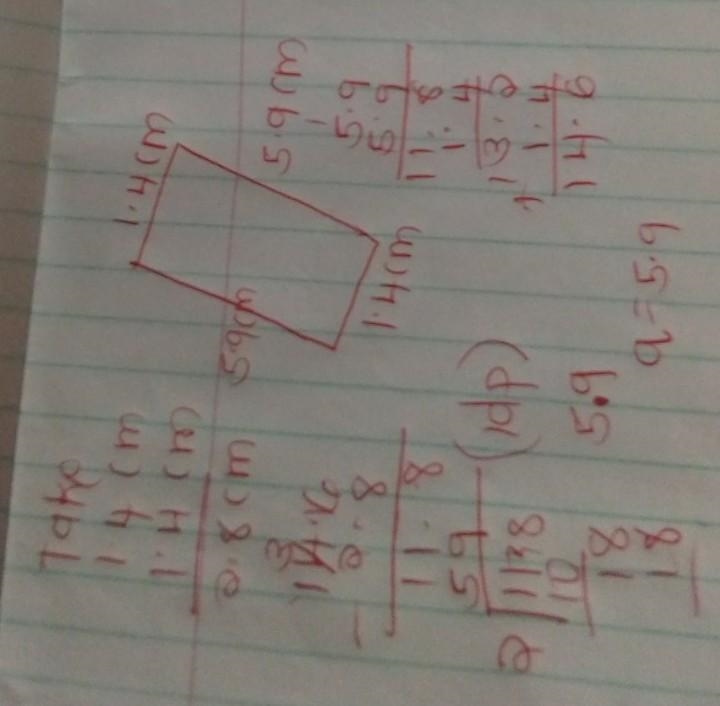 Take
1.4 cm
1.4 cm
2.8 cm
3
14.6
- 2.8
11.8
59
2 118
10
18
18
(1dp)
5.9
a = 5.9
1.4 cm
5.9 cm
5.9 cm
1.4 cm
5.9
5.9
11.8
1.4
13.2
+ 1.4
14.6